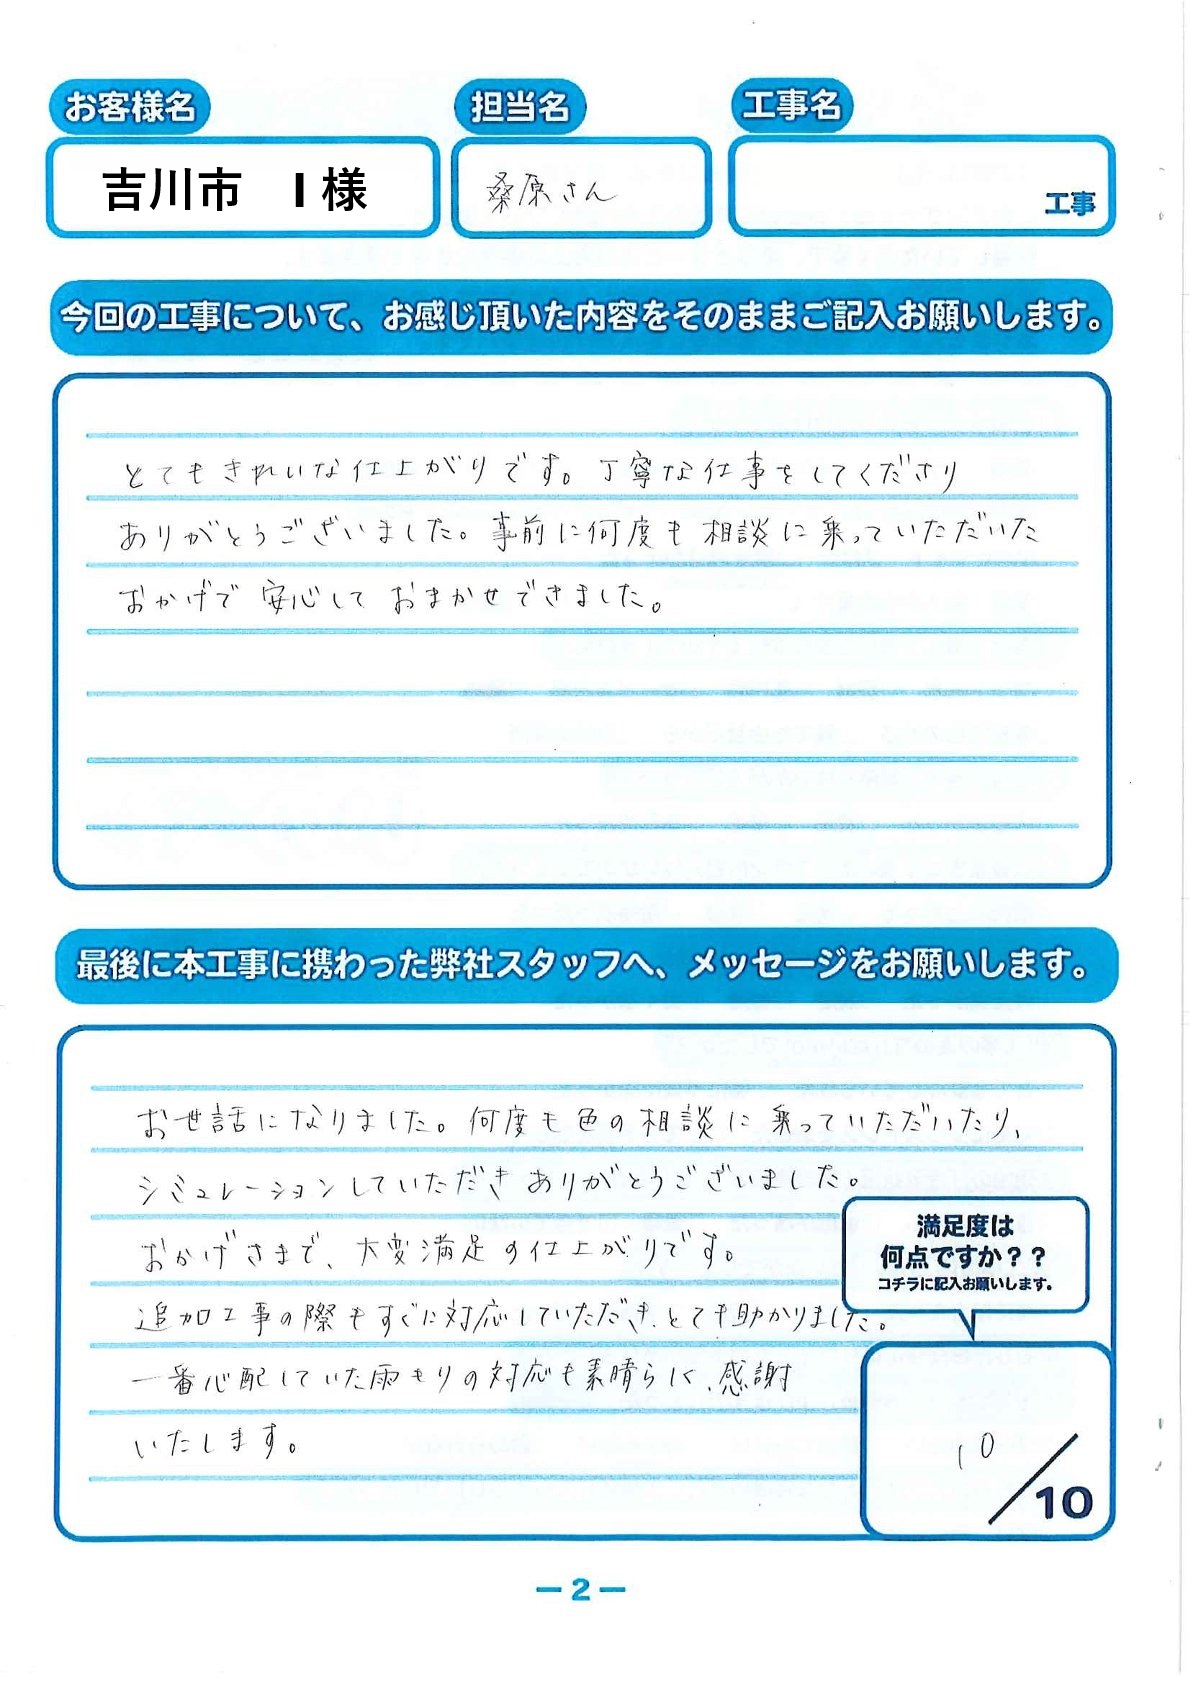 お客様名 担当名 工事名
吉川市 I様 桑原さん 工事
今回の工事について、お感じ頂いた内容をそのままご記入お願いします。
とてもきれいな仕上がりです。丁寧な仕事をしてくださり
ありがとうございました。事前に何度も相談に乗っていただいた
おかげで安心しておまかせできました。
最後に本工事に携わった弊社スタッフへ、メッセージをお願いします。
お世話になりました。何度も色の相談に乗っていただいたり、
シミュレーションしていただきありがとうございました。
おかげさまで、大変満足の仕上がりです。
追加工事の際もすぐに対応していただき、とても助かりました。
一番心配していた雨もりの対応も素晴らしく、感謝
いたします。
満足度は
何点ですか??
コチラに記入お願いします。
10/10
-2-